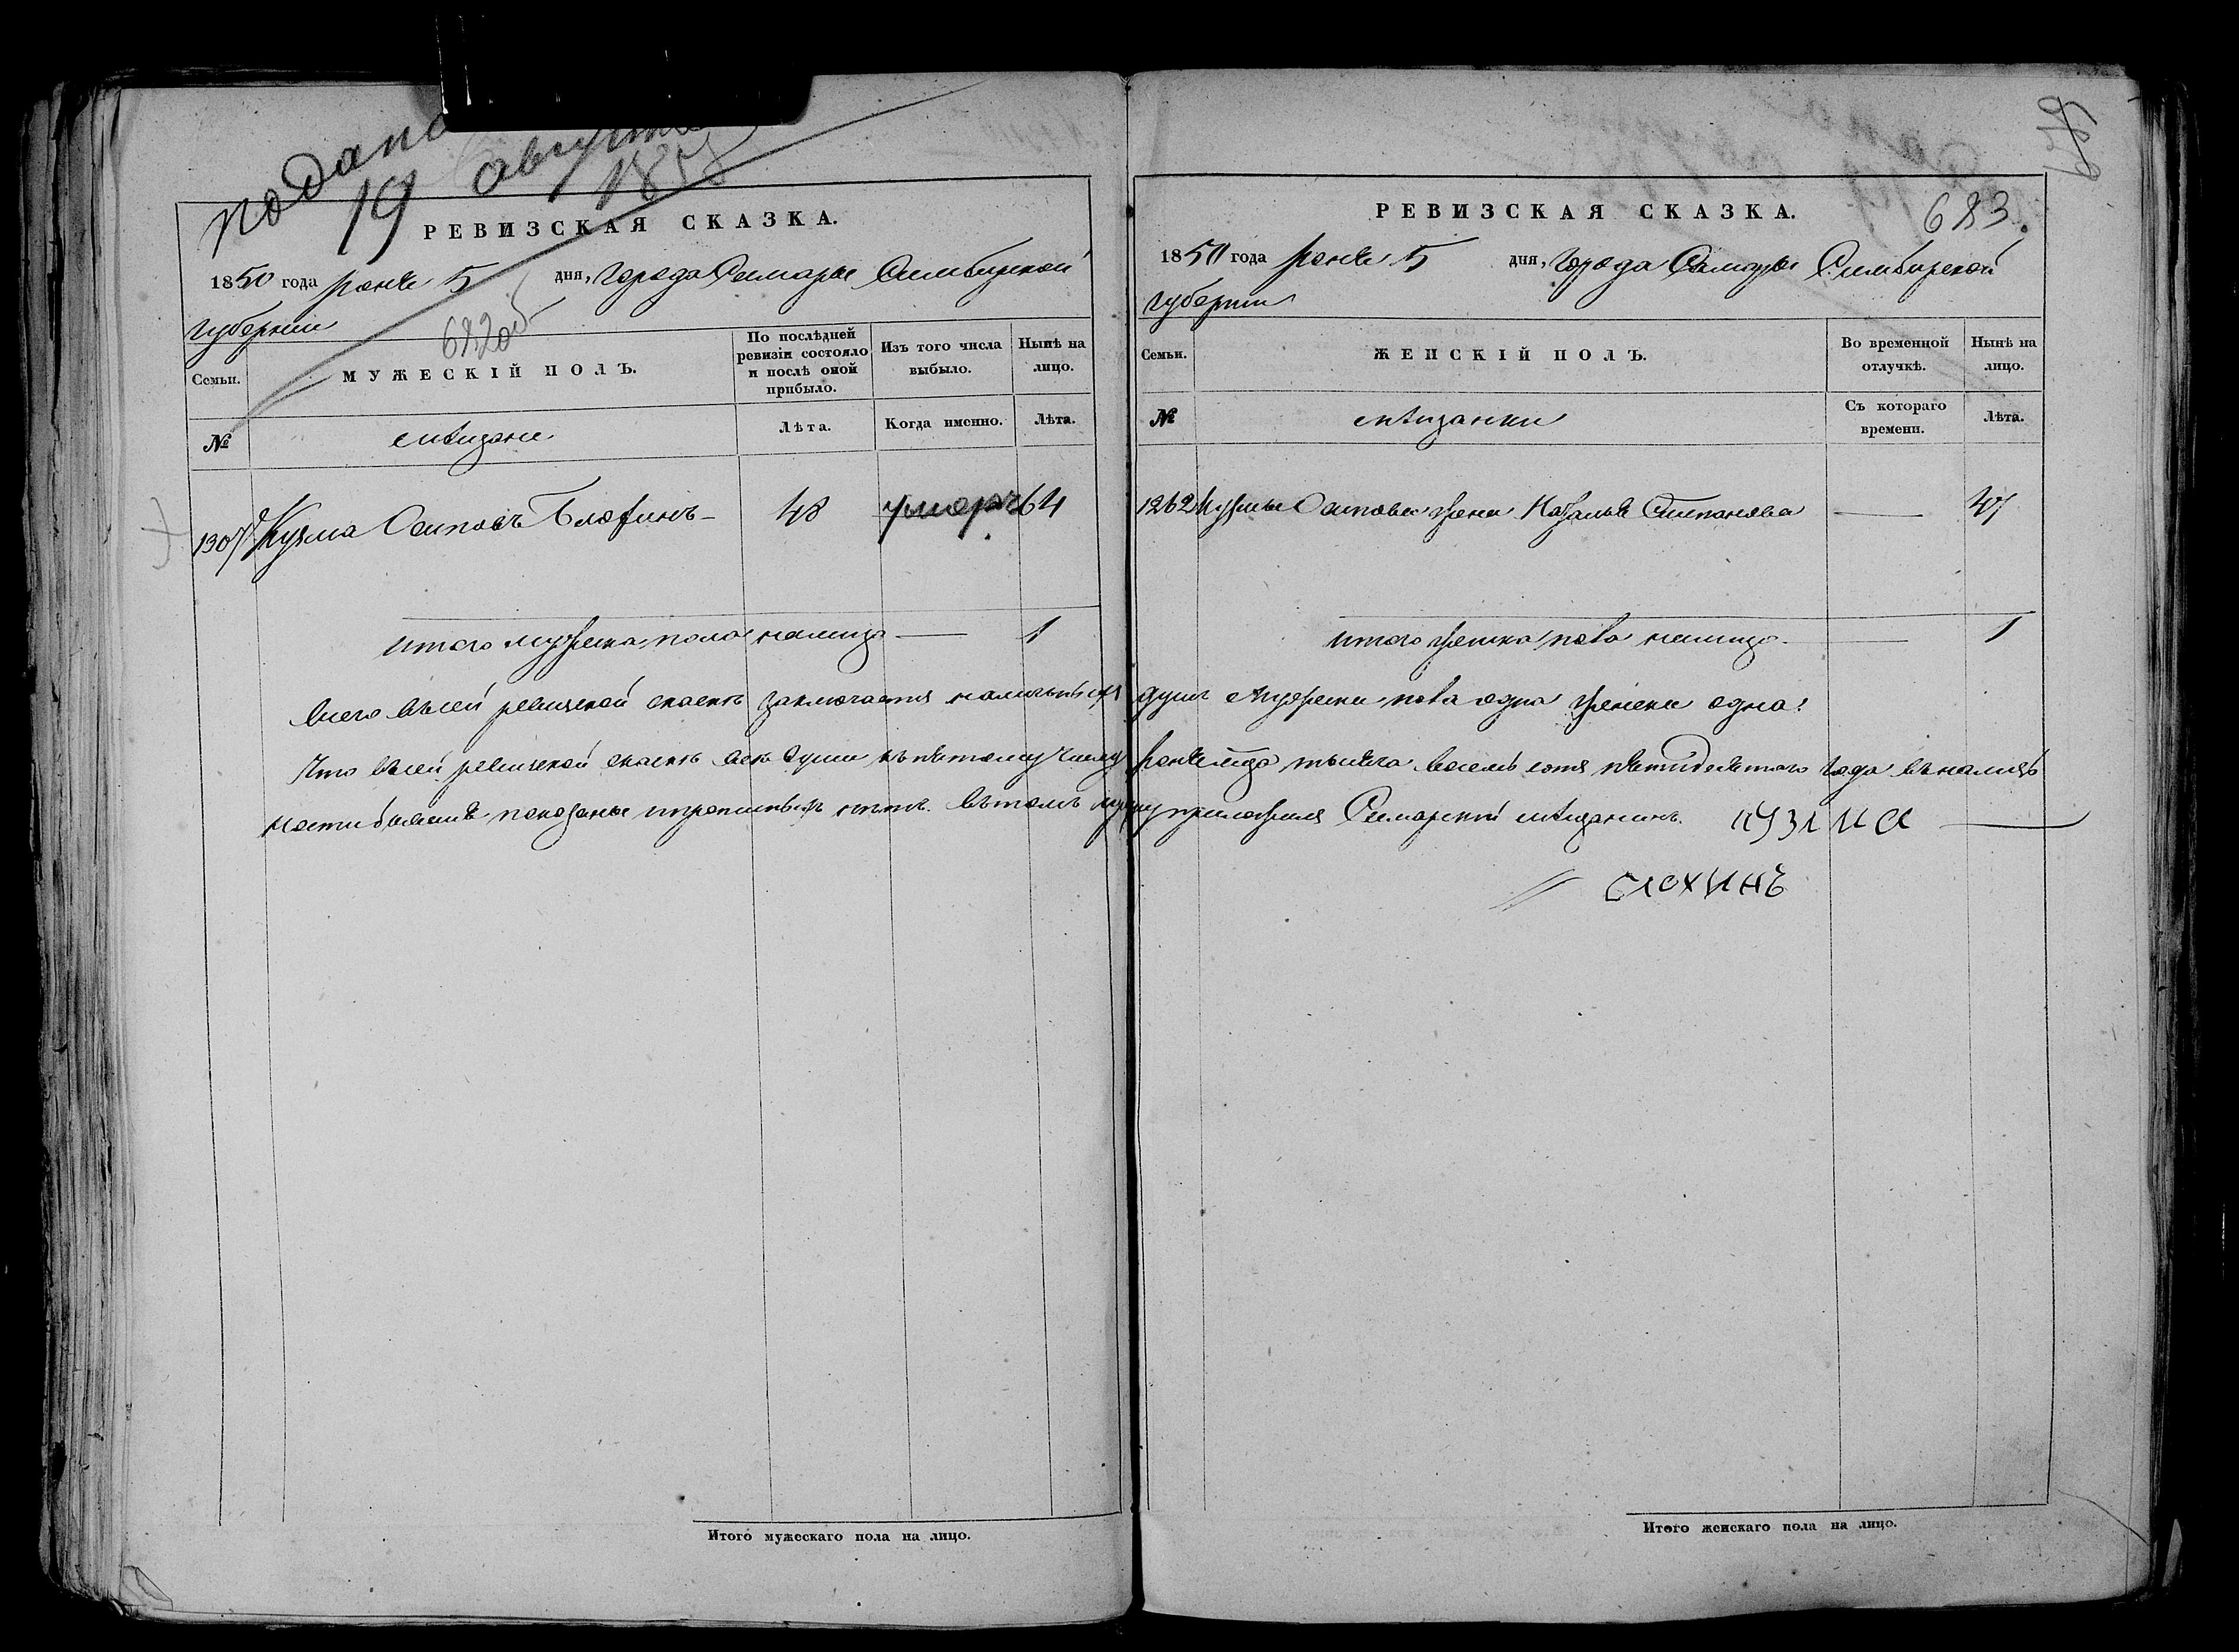 подана
19 августа
1858
РЕВИЗСКАЯ СКАЗКА.
1850 года Юня 5 дня, города Самары Симбирской
губернии
682 об
Семьи.
МУЖЕСКІЙ ПОЛЪ.
По послѣдней ревизіи состояло и послѣ оной прибыло.
Изъ того числа выбыло.
Нынѣ на лицо.
№
мѣщане
Лѣта.
Когда именно.
Лѣта.
Кузма Осиповъ Блохинъ
48
умеръ
64
итого мужеска пола налицо — 1
Итого мужескаго пола на лицо.
679
683.
РЕВИЗСКАЯ СКАЗКА.
1850 года Юня 5 дня, города Самары Симбирской
губернии
Семьи.
ЖЕНСКІЙ ПОЛЪ.
Во временной отлучкѣ.
Нынѣ на лицо.
№
мѣщанки
Съ котораго времени.
Лѣта.
1262 Кузмы Осипова жена Наталья Степанова — 47
итого женска пола налицо — 1
всего въсей ревиской скаскѣ заключается наличныхъ душъ мужеска пола одна женска одна:
Что въсей ревиской скаскѣ всѣ души къ пятому числу Юня мца тысяча восемь сотъ пятидесятого года въналич
ности бывшие показаны ипрописныхъ нѣтъ. вътомъ руку приложилъ Самарский мѣщанинъ. кузма
блохинъ
Итого женскаго пола на лицо.